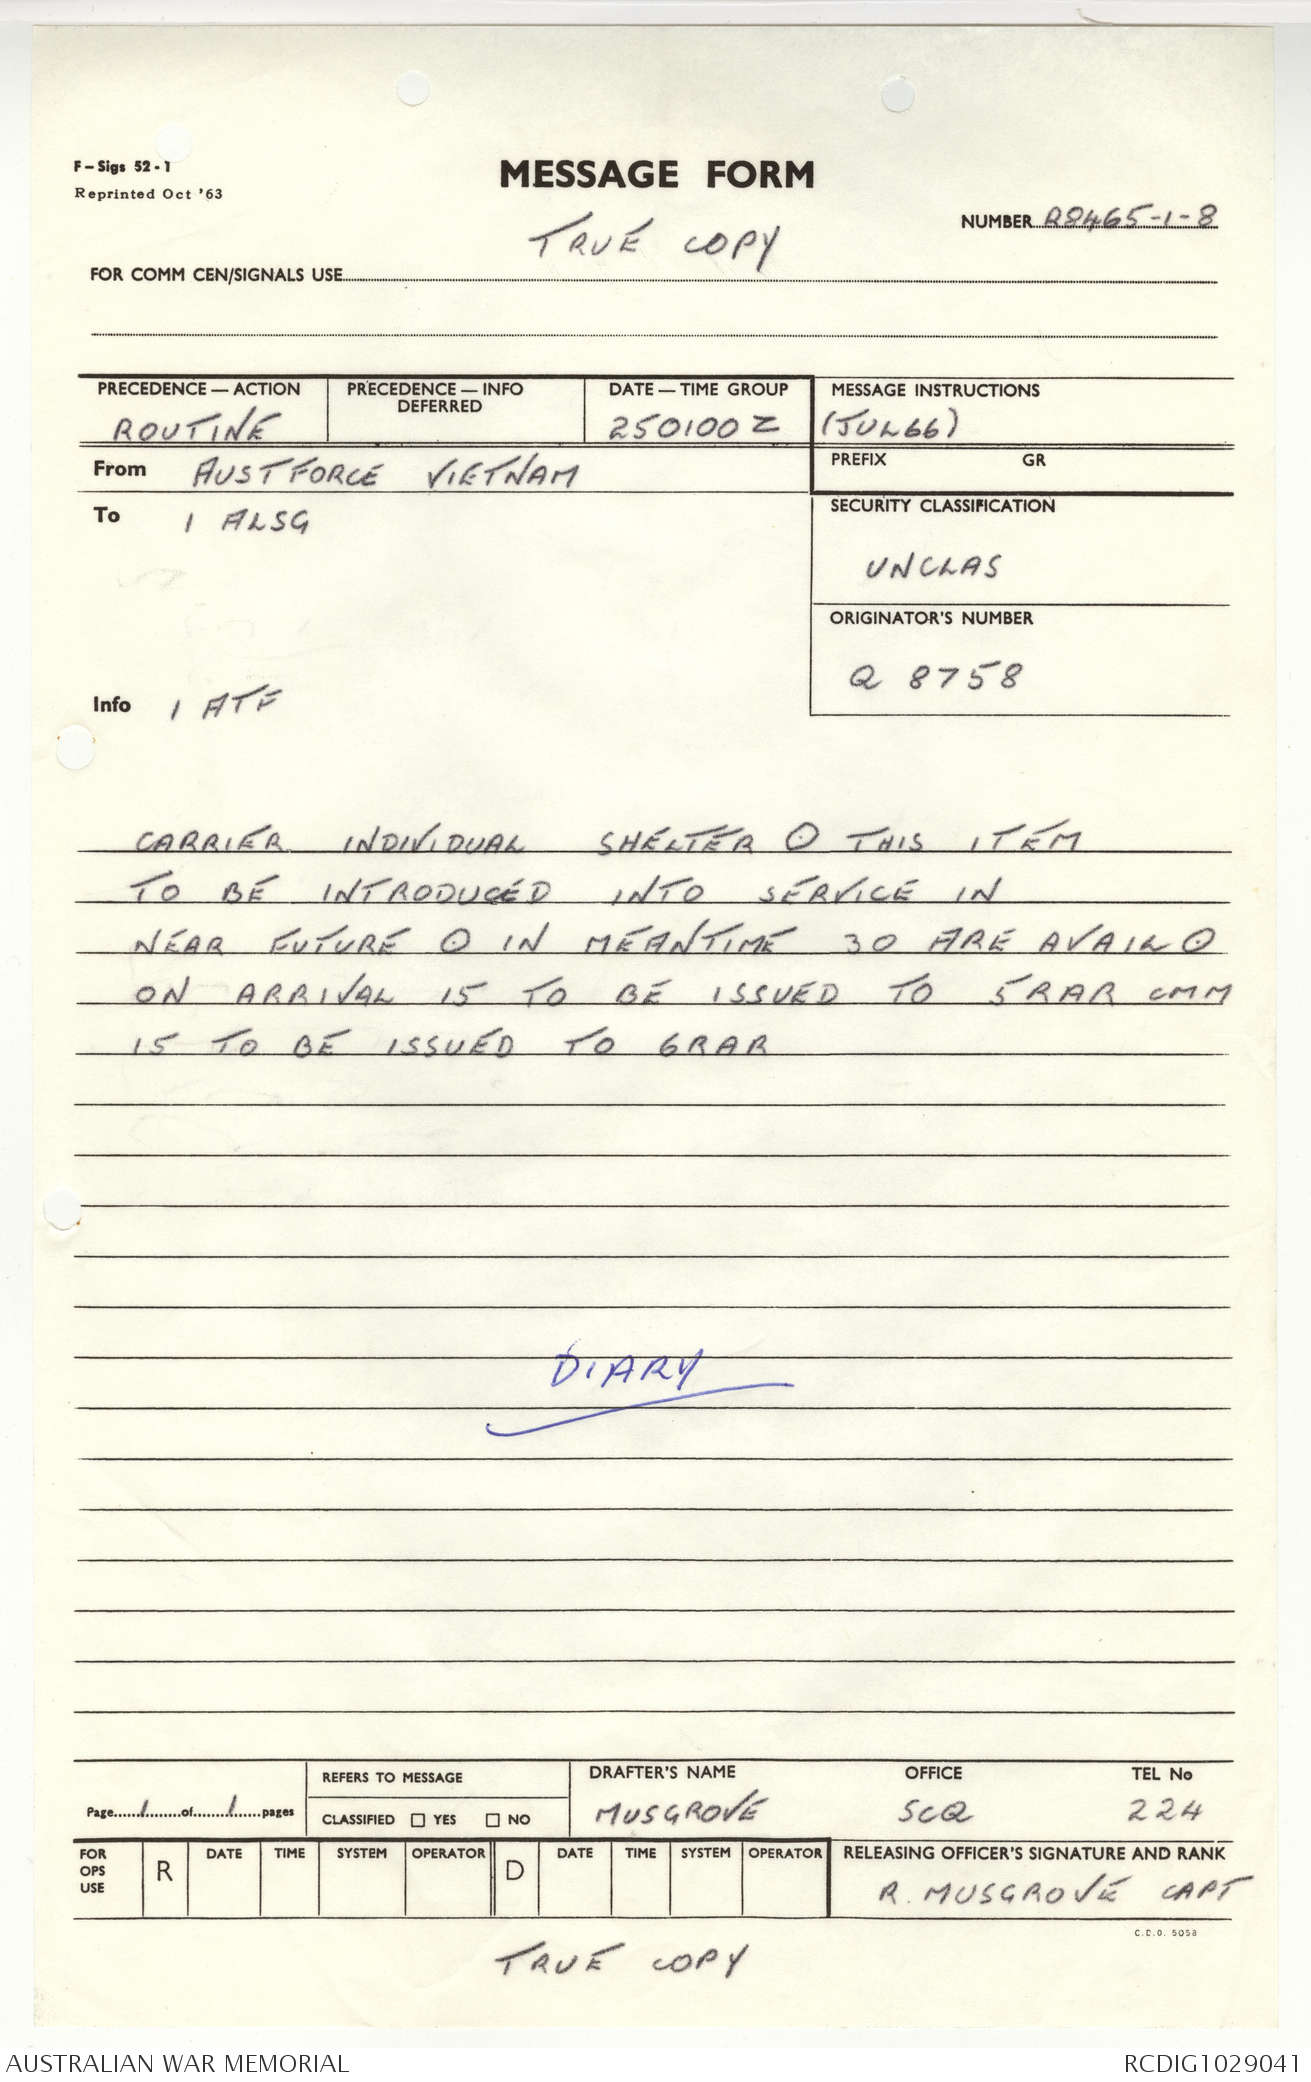 F - Sigs 52 - 1
Reprinted Oct '63
MESSAGE FORM
NUMBER R8465-1-8
TRUE COPY
FOR COMM CEN/SIGNALS USE
PRECEDENCE — ACTION
ROUTINE
PRECEDENCE — INFO
DEFERRED
DATE — TIME GROUP
250100 Z
MESSAGE INSTRUCTIONS
(JUL66)
From AUSTFORCE VIETNAM
PREFIX GR
To 1 ALSG
SECURITY CLASSIFICATION
UNCLAS
ORIGINATOR'S NUMBER
Q 8758
Info 1 ATF
CARRIER INDIVIDUAL SHELTER ⊙ THIS ITEM
TO BE INTRODUCED INTO SERVICE IN
NEAR FUTURE ⊙ IN MEANTIME 30 ARE AVAIL ⊙
ON ARRIVAL 15 TO BE ISSUED TO 5RAR CMM
15 TO BE ISSUED TO 6RAR
DIARY
Page 1 of 1 pages
REFERS TO MESSAGE
CLASSIFIED ☐ YES ☐ NO
DRAFTER'S NAME
MUSGROVE
OFFICE
SCQ
TEL No
224
FOR
OPS
USE
R DATE TIME SYSTEM OPERATOR D DATE TIME SYSTEM OPERATOR
RELEASING OFFICER'S SIGNATURE AND RANK
R. MUSGROVE CAPT
C.D.O. 5058
TRUE COPY
AUSTRALIAN WAR MEMORIAL
RCDIG1029041